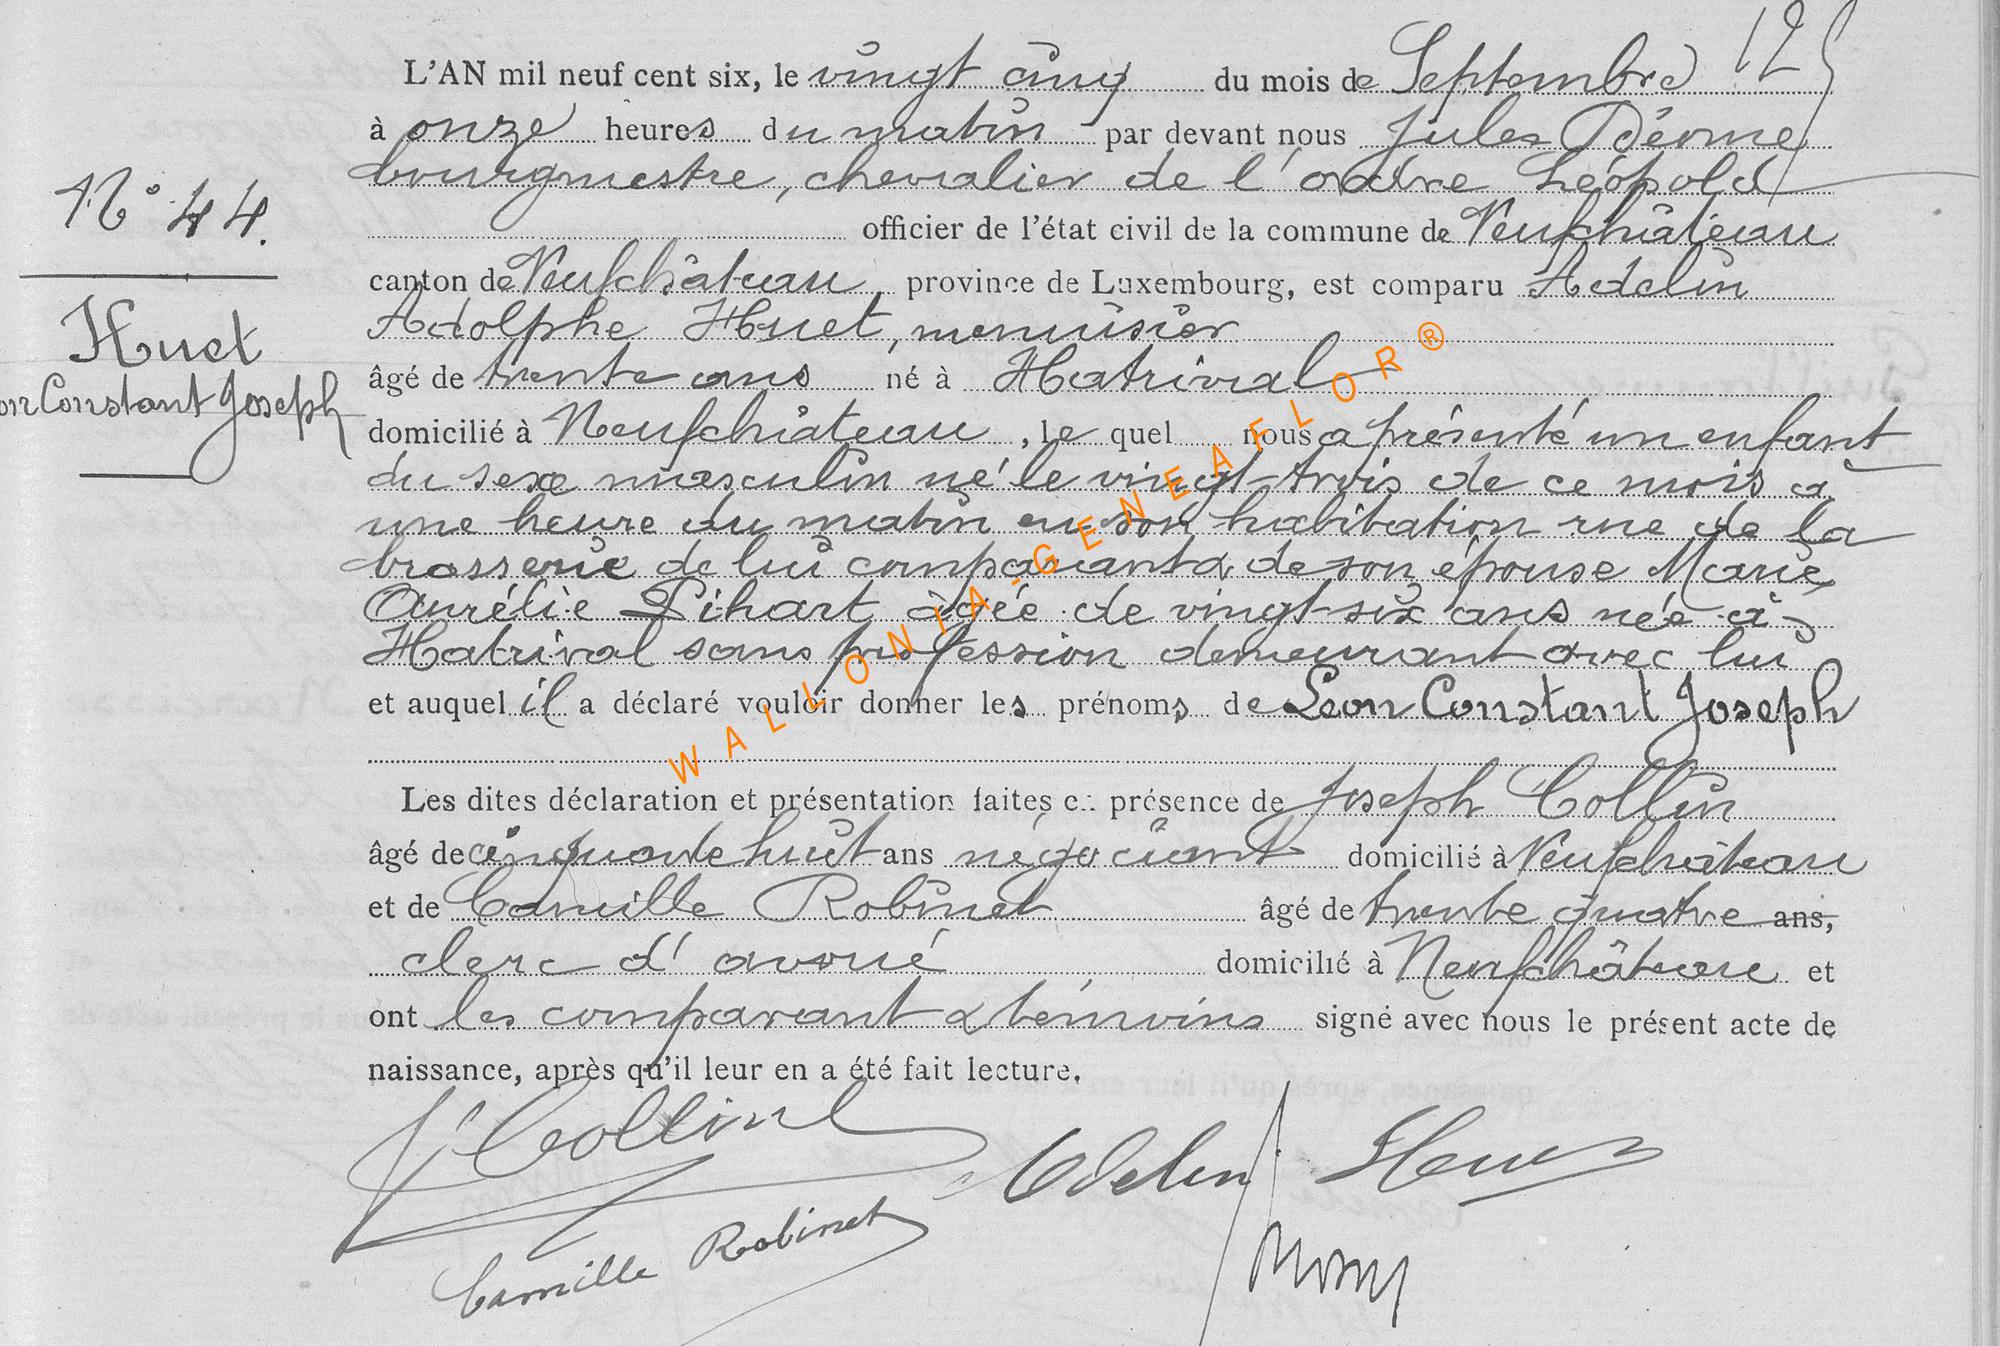 125
L'AN mil neuf cent six, le vingt cinq du mois de Septembre
à onze heures du matin par devant nous Jules Déome
bourgmestre, chevalier de l'ordre Léopold
officier de l'état civil de la commune de Neufchâteau
canton de Neufchâteau, province de Luxembourg, est comparu Adelin
Adolphe Huet, menuisier
âgé de trente ans né à Hatrival
domicilié à Neufchâteau, le quel nous a présenté un enfant
du sexe masculin né le vingt-trois de ce mois à
une heure du matin en son habitation rue de la
brasserie de lui comparant & de son épouse Marie
Aurélie Pihart âgée de vingt-six ans née à
Hatrival sans profession demeurant avec lui
et auquel il a déclaré vouloir donner les prénoms de Léon Constant Joseph
Les dites déclaration et présentation faites en présence de Joseph Collin
âgé de cinquante huit ans négociant domicilié à Neufchâteau
et de Camille Robinet âgé de trente quatre ans,
clerc d'avoué domicilié à Neufchâteau et
ont les comparant & témoins signé avec nous le présent acte de
naissance, après qu'il leur en a été fait lecture.
N° 44.
Huet
on Constant Joseph
J. Collin
Adelin Huet
Camille Robinet
WALLONIA-GENEAFLOR®